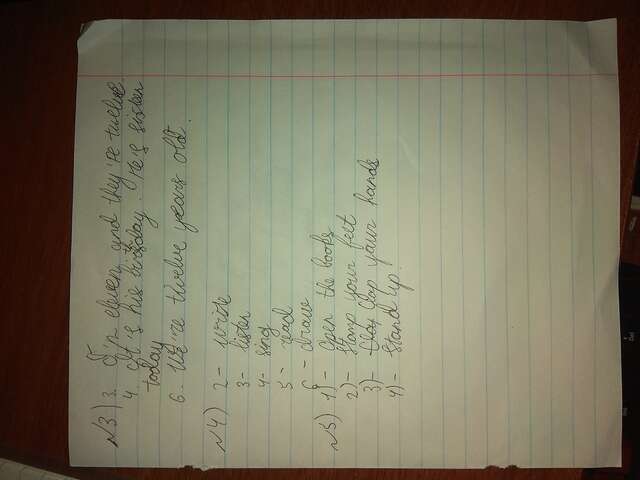 N3) 3. I'm eleven and they're twelve
4. It's his birthday. He's sister
today
6. We're twelve years old.
N4) 2 - write
3 - listen
4 - sing
5 - read
6 - draw
N5) 1) - Open the books
2) - Stamp your feet
3) - Clap your hands
4) - Stand up.